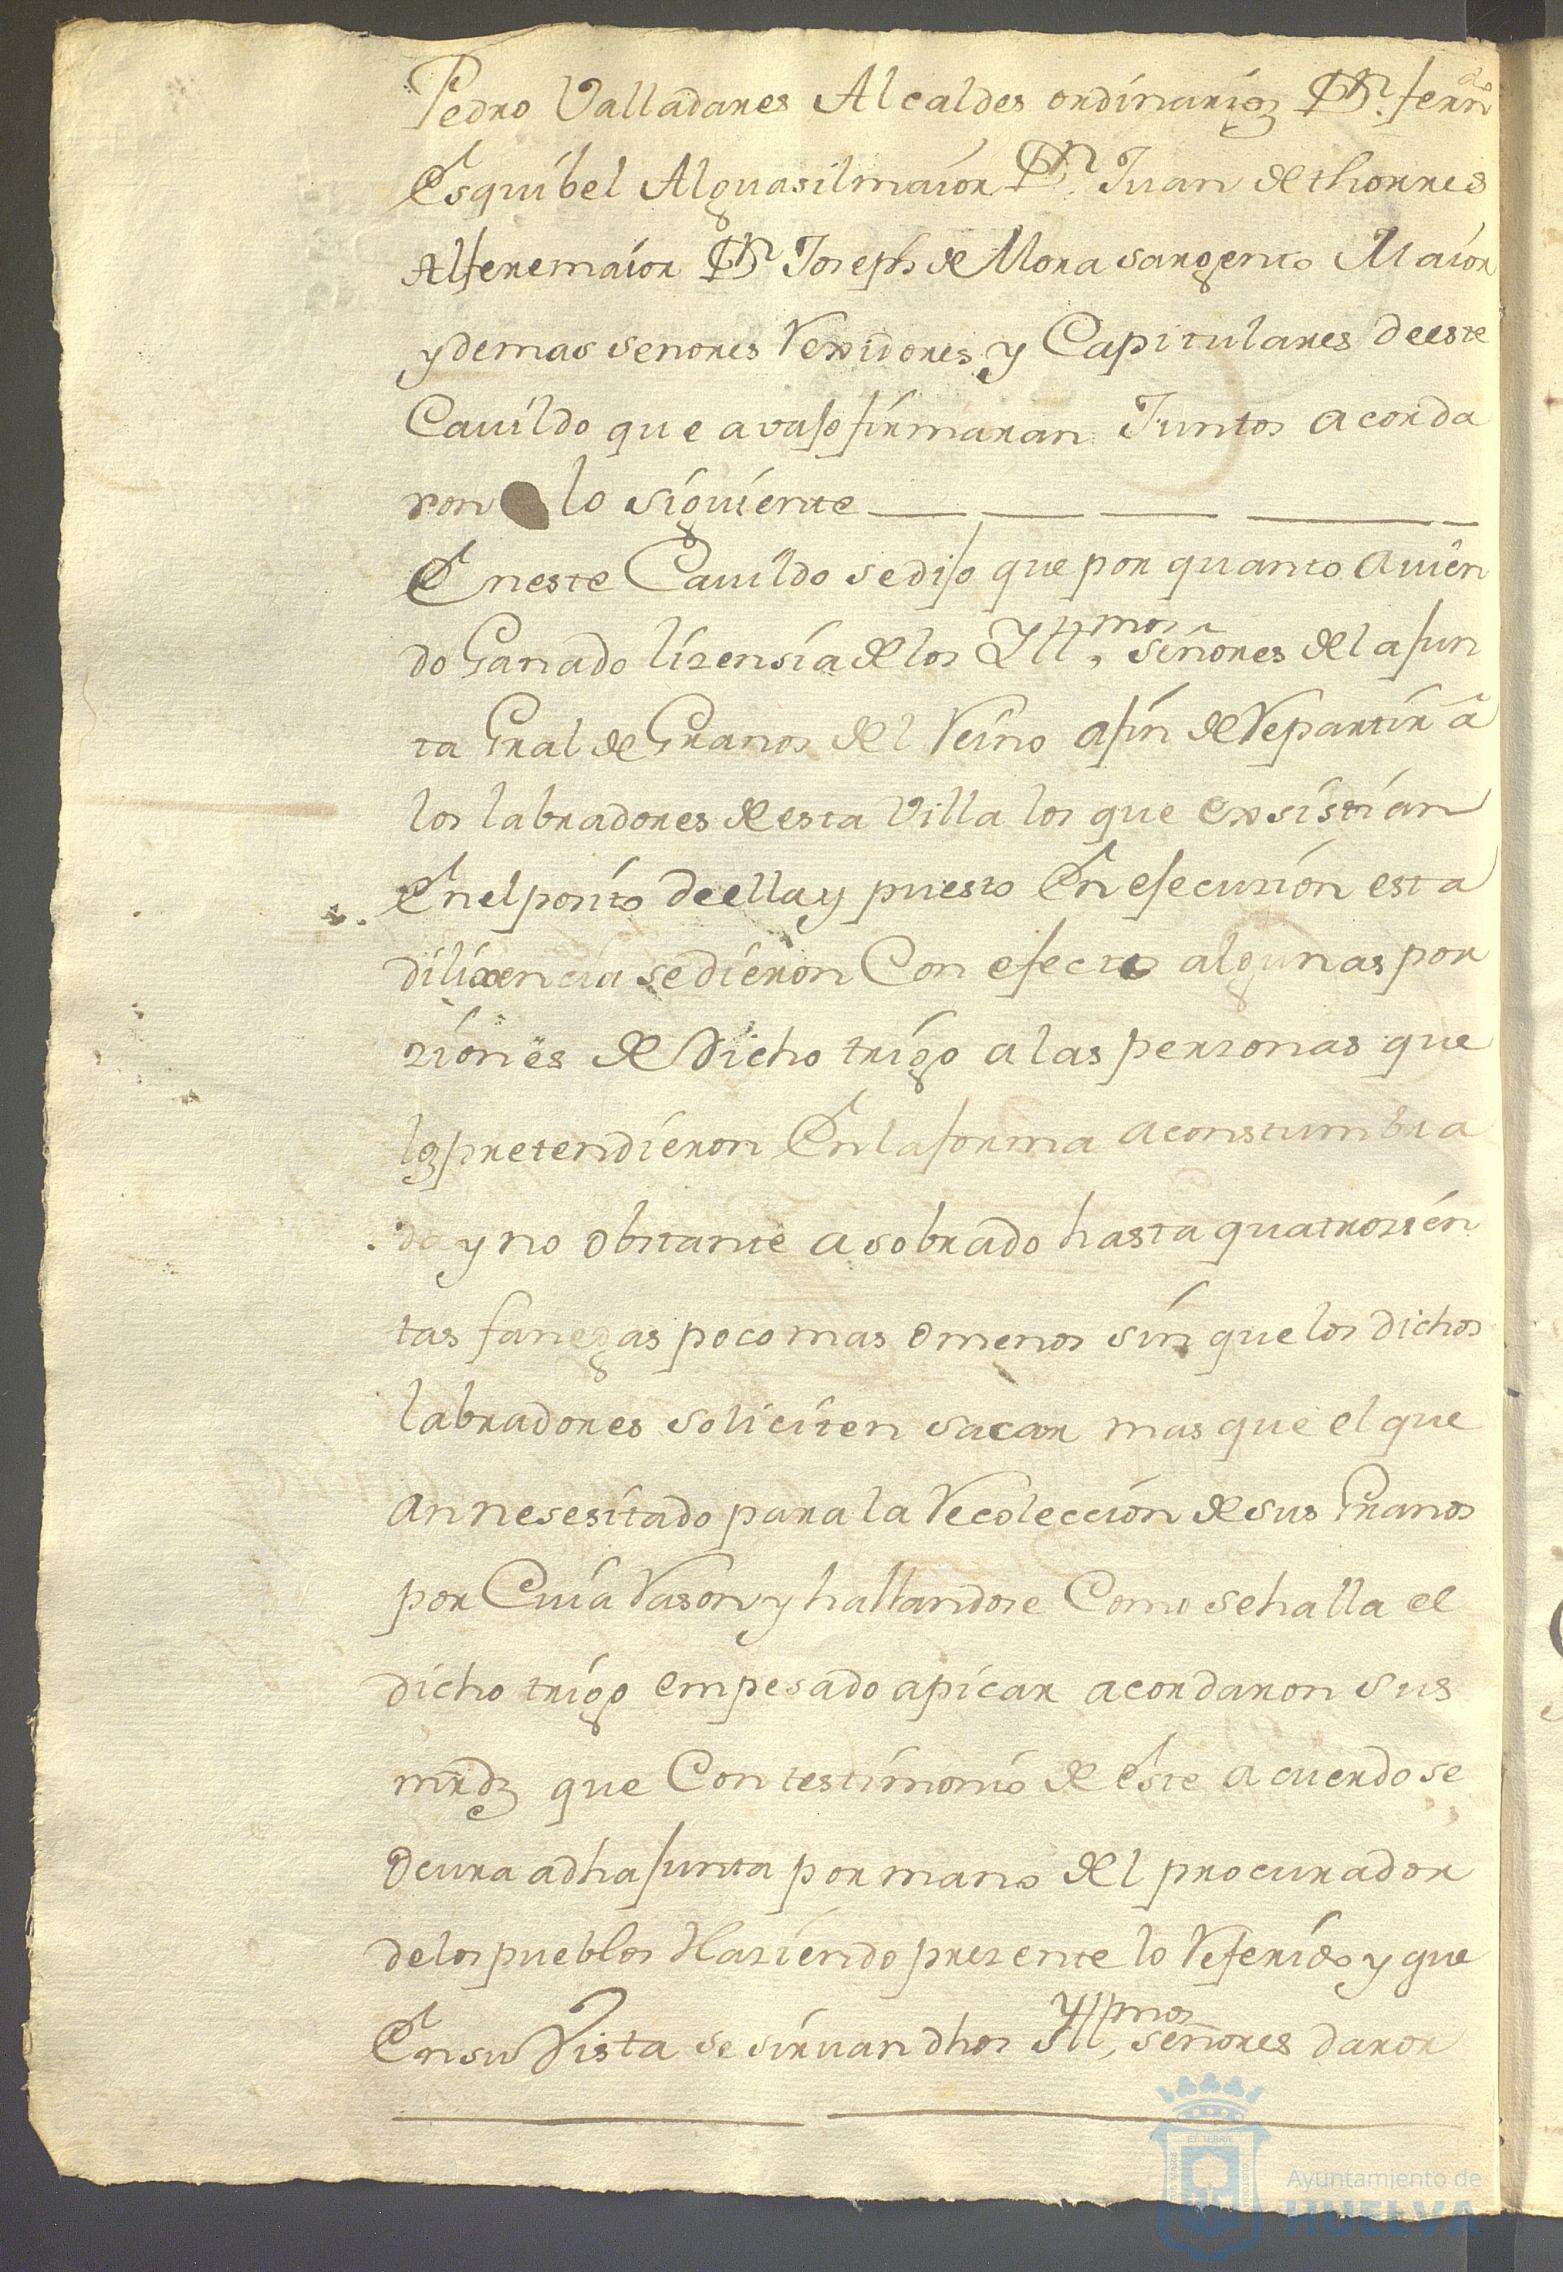 Pedro Valladares Alcaldes ordinarios Dn. ferndo
Esquibel Alguasilmaior Dn. Juan de thorres
Alferemaior Dn Joseph de Mora sargento Maior
y demas senores Rexidores y Capitulares de este
Cauildo que avajo firmaran Juntos acorda
ron lo siguiente
En este Cauildo se dijo que por quanto auien
do Ganado lizensia de los Yll.mos señores de la jun
ta Gral de Granos del Reino a fin de Repartir â
los labradores de esta Villa los que exsistian
En el posito de ella y puesto En ejecuzion esta
dilixencia se dieron Con efecto algunas por
ziones de Dicho trigo a las personas que
los pretendieron En la forma aconstumbra
da y no obstante a sobrado hasta quatrozien
tas fanegas poco mas o menos sin que los dichos
labradores soliciten sacar mas que el que
an nesesitado para la Recoleccion de sus Granos
por Cuia Rason y hallandose Como se halla el
dicho trigo empesado a picar acordaron sus
mrds que Con testimonio de este acuerdo se
ocurra a dha junta por mano del procurador
de los pueblos Haziendo presente lo Referido y que
En su Vista se siruan dhos Yll.mos señores dar or
Ayuntamiento de
HUELVA